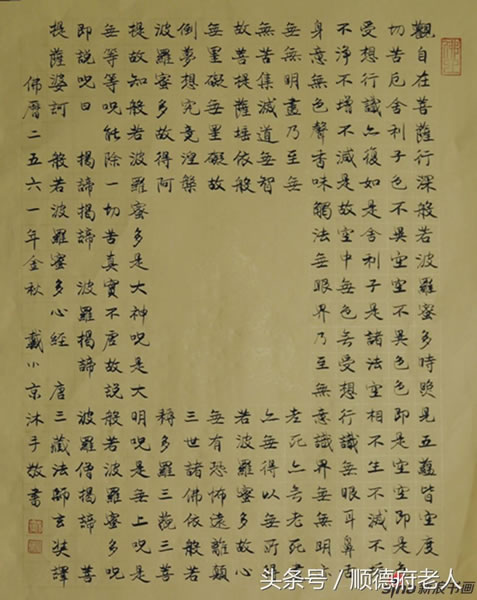 觀自在菩薩行深般若波羅蜜多時照見五蘊皆空度
切苦厄舍利子色不異空空不異色色即是空空即是色
受想行識亦復如是舍利子是諸法空相不生不滅不垢
不淨不增不減是故空中無色無受想行識無眼耳鼻舌
身意無色聲香味觸法無眼界乃至無意識界無無明亦
無無明盡乃至無老死亦無老死盡
無苦集滅道無智亦無得以無所得
故菩提薩埵依般若波羅蜜多故心
無罣礙無罣礙故無有恐怖遠離顛
倒夢想究竟涅槃三世諸佛依般若
波羅蜜多故得阿耨多羅三藐三菩
提故知般若波羅蜜多是大神呪是大明呪是無上呪是
無等等呪能除一切苦真實不虛故說般若波羅蜜多呪
即說呪曰 揭諦揭諦 波羅揭諦 波羅僧揭諦 菩
提薩婆訶 般若波羅蜜多心經 唐三藏法師玄奘譯
佛曆二五六一年金秋 戴小京沐手敬書
新浪书画
头条号/顺德府老人